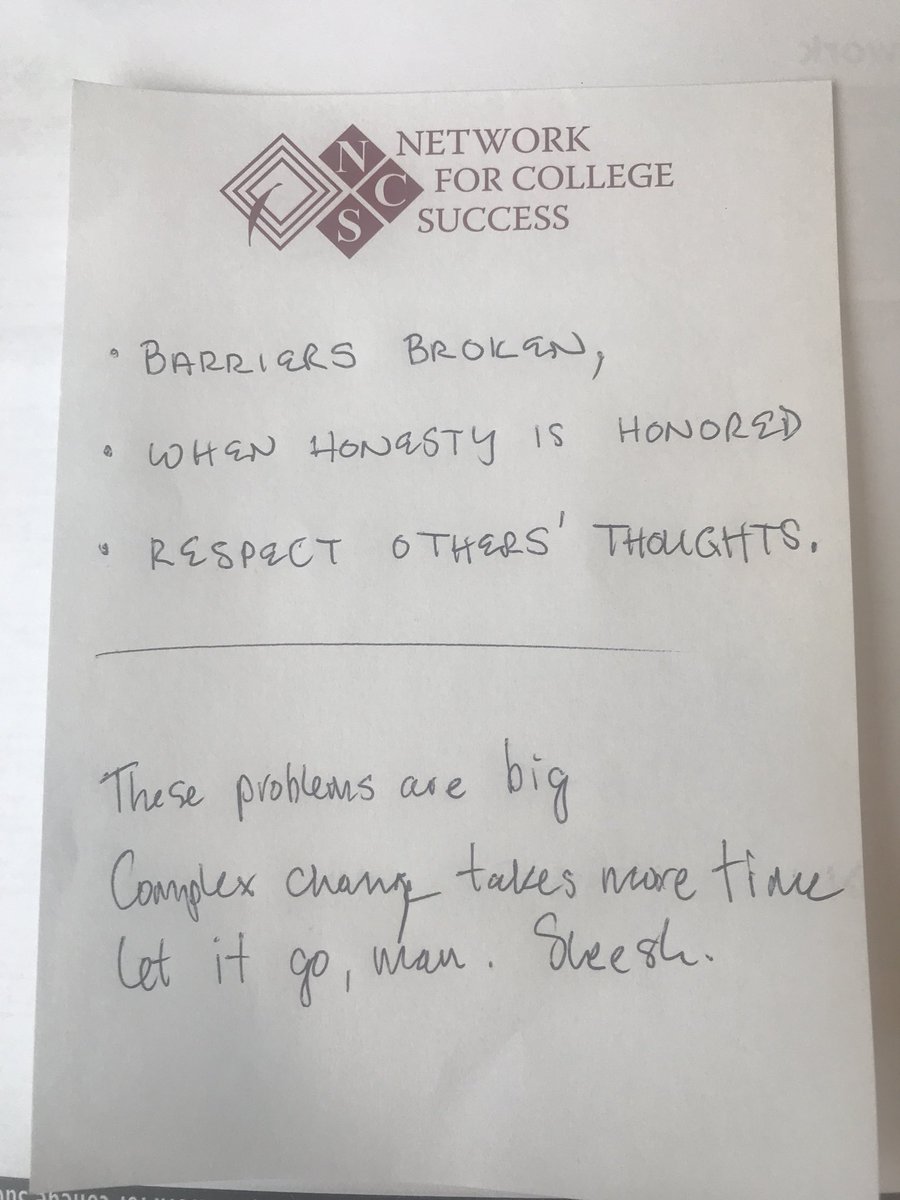 NCS
NETWORK
FOR COLLEGE
SUCCESS
• BARRIERS BROKEN,
• WHEN HONESTY IS HONORED
• RESPECT OTHERS' THOUGHTS.
These problems are big
Complex change takes more time
let it go, man. Sheesh.